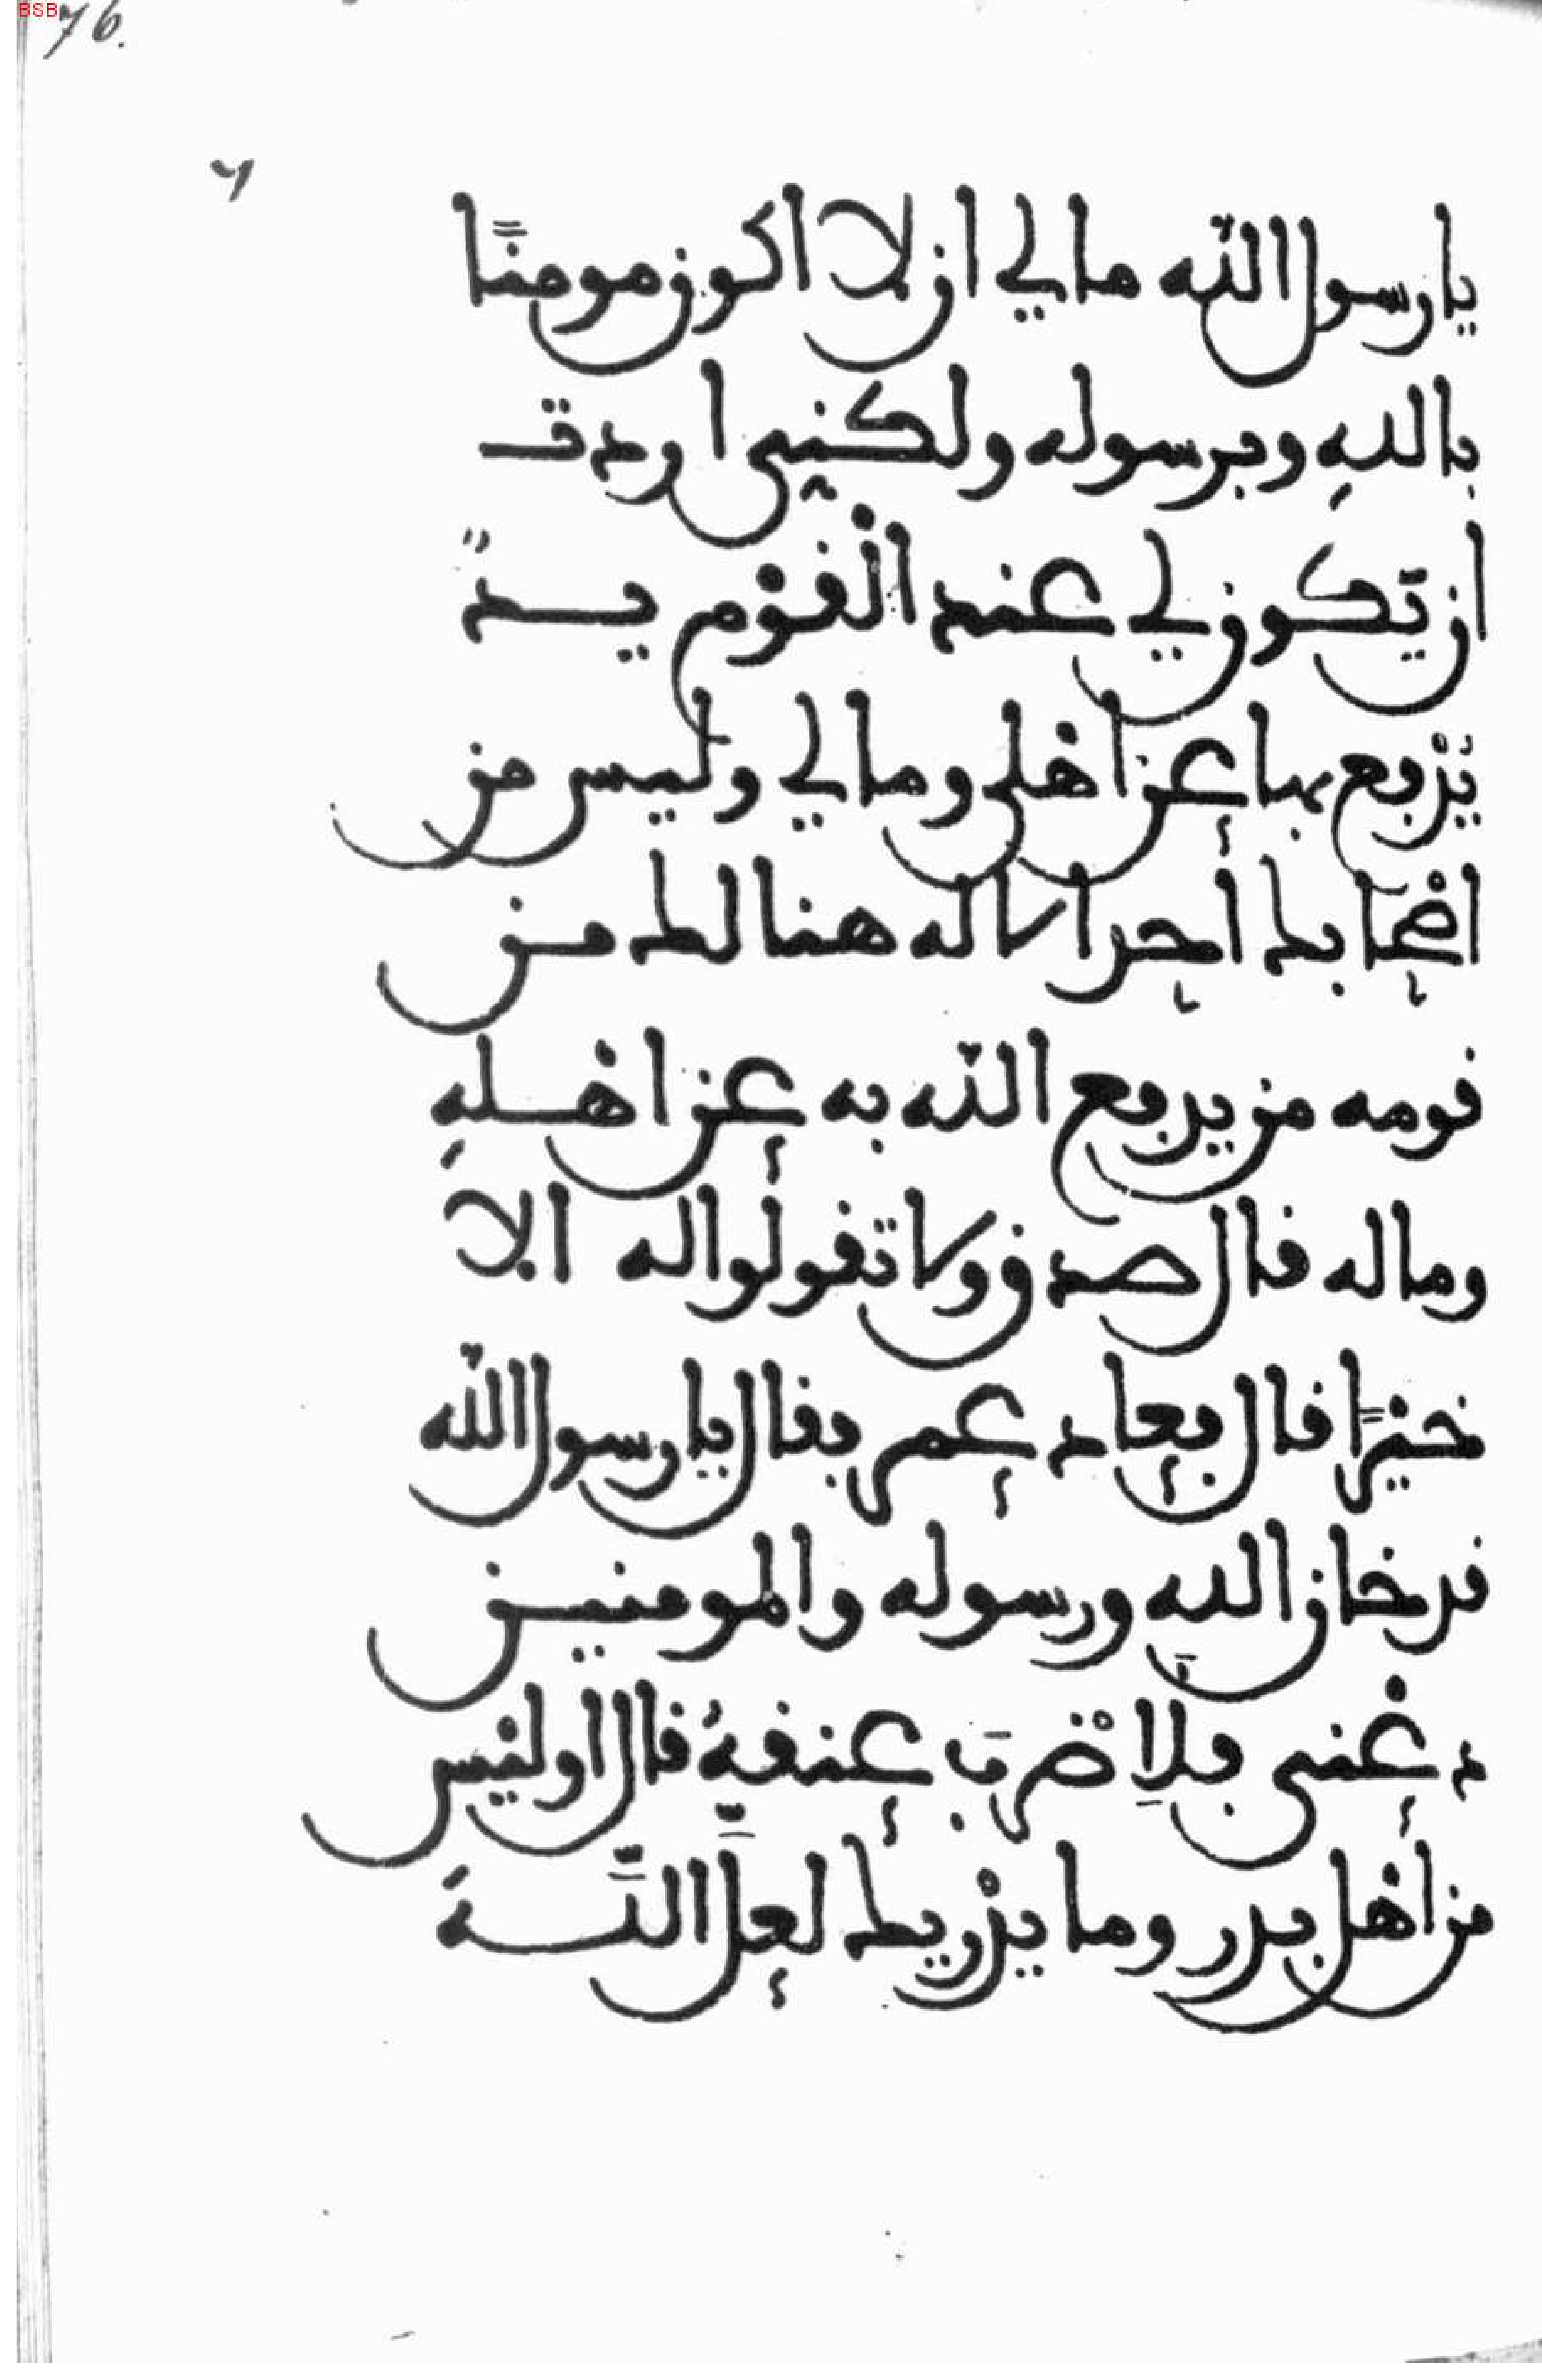 BSB
76.
يا رسول الله ما لي ان لا اكون مومنًا
بالله وبرسوله ولكنى اردت
ان تكون لي عند القوْم يـدٌ
يُدْفع بها عن اهْلى ومالي وليس من
اصْحابك أحد الا له هنالك مـن
قومه من يدفع الله به عن اهْـلهِ
وماله قال صدق ولا تقولوا له الا
خيْرًا قال فعاد عمر فقال يا رسول الله
قد خان الله ورسوله والمومنيـن
دعْنى فلِاضْربَ عنقهُ قال اوليْس
من أهْل بدر وما يدْريك لعلَّ اللَّـهَ